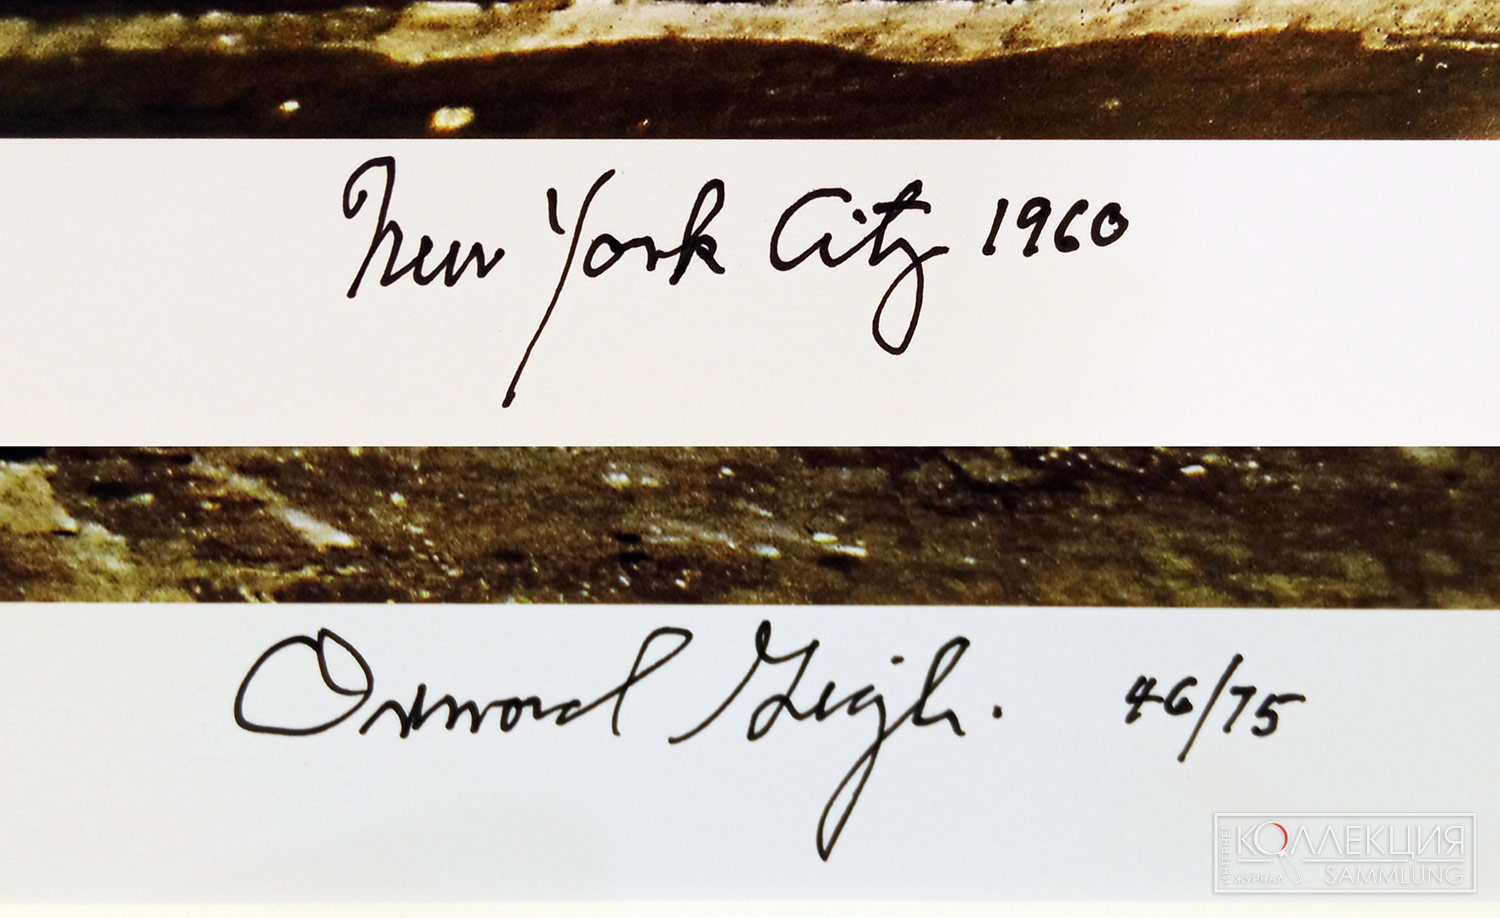 New York City 1960
Ormond Gigli. 46/75
ИНТЕРНЕТ
ЖУРНАЛ
КОЛЛЕКЦИЯ
SAMMLUNG